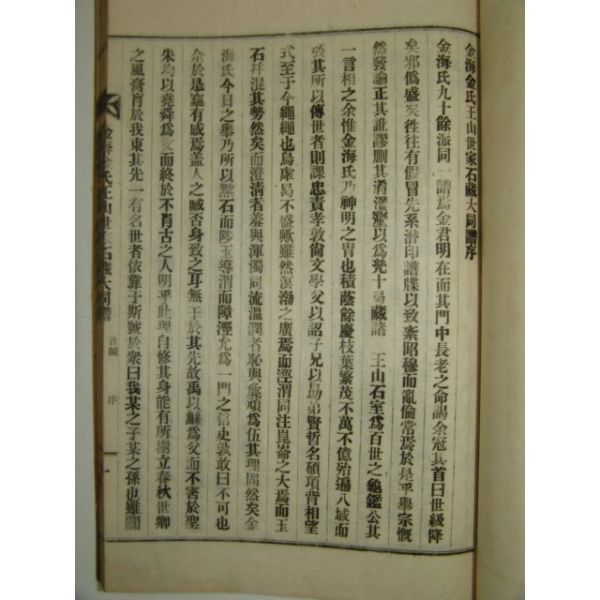 金海金氏王山世家石藏大同譜序
金海氏九十餘派同一譜焉金君明在而其門中長老之命謁余冠其首曰世級降
矣邪僞盛矣徃徃有假冒先系潜印譜牒以致紊昭穆而亂倫常焉於是乎擧宗慨
然發論正其訛謬刪其淆濫鋟以爲凳十局藏諸 王山石室爲百世之龜鑑公其
一言相之余惟金海氏乃神明之冑也積蔭餘慶枝葉繁茂不萬不億殆遍八域而
攷其所以傳世者則課忠責孝敦尙文學父以詔子兄以勗弟賢哲名碩項背相望
式至于今繩繩也烏虖曷不盛歟雖然溟渤之廣焉而涇渭同注崑崙之大焉而玉
石幷混其勢然矣而澄清者羞與渾濁同流溫潤者恥與麁頑爲伍其理固然矣金
海氏今日之擧乃所以黜石而陟玉導渭而障涇允爲一門之信史孰敢曰不可也
余於是竊有感焉蓋人之臧否身致之耳無于於其先故禹以鯀爲父而不害於聖
朱均以堯舜爲父而終於不肖古之人明乎此理自修其身能有所樹立春秋世卿
之風膏肓於我東其先一有名世者依靠于斯號於衆曰我某之子某之孫也雖闒
金海金氏王山世家石藏大同譜 首編 序 一